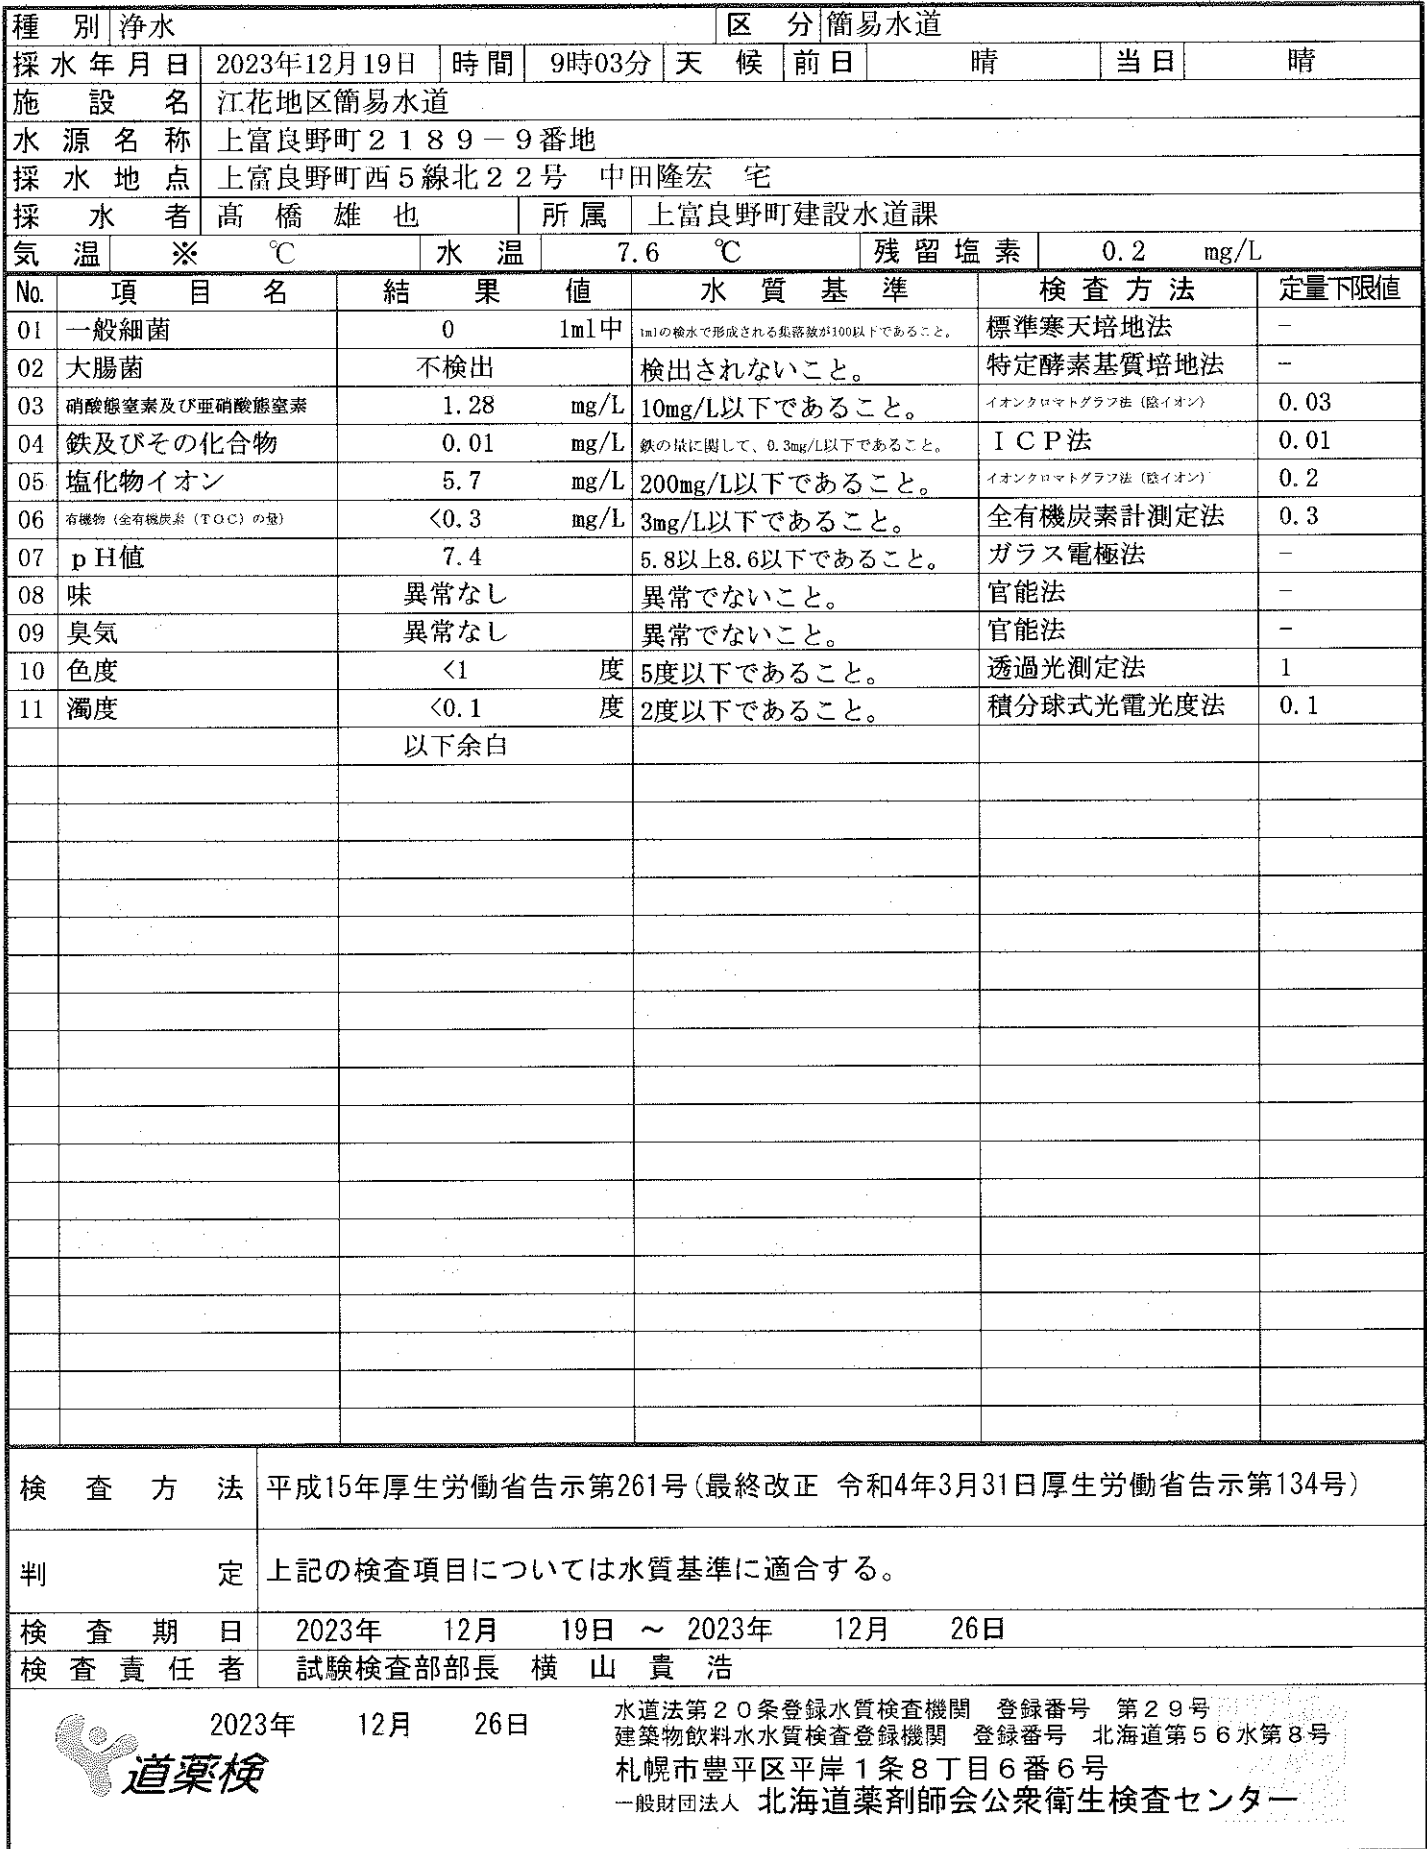 種別 浄水 区分 簡易水道
採水年月日 2023年12月19日 時間 9時03分 天候 前日 晴 当日 晴
施設名 江花地区簡易水道
水源名称 上富良野町2189－9番地
採水地点 上富良野町西5線北22号 中田隆宏 宅
採水者 髙橋雄也 所属 上富良野町建設水道課
気温 ※ ℃ 水温 7.6 ℃ 残留塩素 0.2 mg/L
No. 項目名 結果値 水質基準 検査方法 定量下限値
01 一般細菌 0 1ml中 1mlの検水で形成される集落数が100以下であること。 標準寒天培地法 －
02 大腸菌 不検出 検出されないこと。 特定酵素基質培地法 －
03 硝酸態窒素及び亜硝酸態窒素 1.28 mg/L 10mg/L以下であること。 イオンクロマトグラフ法（陰イオン） 0.03
04 鉄及びその化合物 0.01 mg/L 鉄の量に関して、0.3mg/L以下であること。 ＩＣＰ法 0.01
05 塩化物イオン 5.7 mg/L 200mg/L以下であること。 イオンクロマトグラフ法（陰イオン） 0.2
06 有機物（全有機炭素（TOC）の量） <0.3 mg/L 3mg/L以下であること。 全有機炭素計測定法 0.3
07 pH値 7.4 5.8以上8.6以下であること。 ガラス電極法 －
08 味 異常なし 異常でないこと。 官能法 －
09 臭気 異常なし 異常でないこと。 官能法 －
10 色度 <1 度 5度以下であること。 透過光測定法 1
11 濁度 <0.1 度 2度以下であること。 積分球式光電光度法 0.1
以下余白
検査方法 平成15年厚生労働省告示第261号（最終改正 令和4年3月31日厚生労働省告示第134号）
判定 上記の検査項目については水質基準に適合する。
検査期日 2023年 12月 19日 ～ 2023年 12月 26日
検査責任者 試験検査部部長 横山貴浩
2023年 12月 26日
道薬検
水道法第20条登録水質検査機関 登録番号 第29号
建築物飲料水水質検査登録機関 登録番号 北海道第56水第8号
札幌市豊平区平岸1条8丁目6番6号
一般財団法人 北海道薬剤師会公衆衛生検査センター